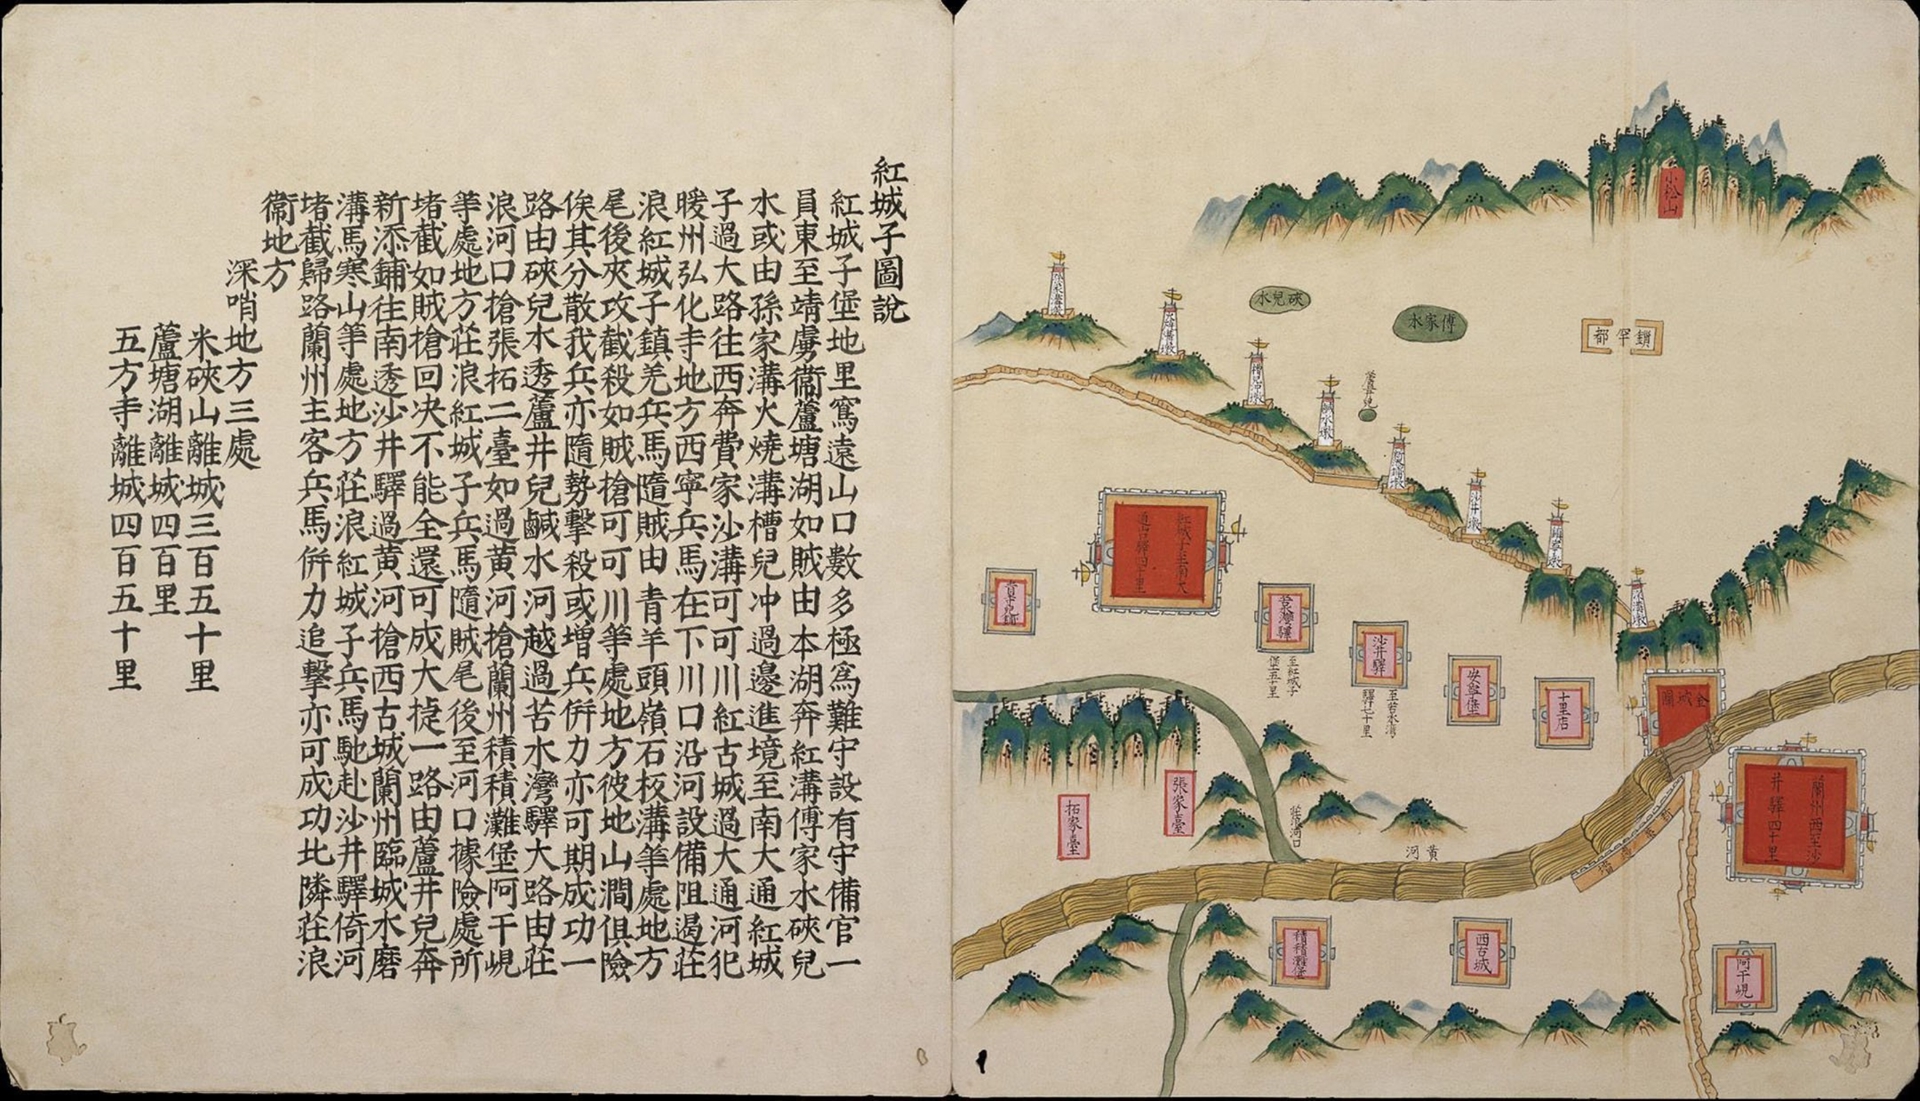 紅城子圖說
紅城子堡地里窵遠山口數多極爲難守設有守備官一
員東至靖虜衞蘆塘湖如賊由本湖奔紅溝傅家水硤兒
水或由孫家溝火燒溝槽兒冲過邊進境至南大通紅城
子過大路往西奔費家沙溝可可川紅古城過大通河犯
暖州弘化寺地方西寧兵馬在下川口沿河設備阻遏莊
浪紅城子鎮羌兵馬隨賊由青羊頭嶺石板溝等處地方
尾後夾攻截殺如賊槍可可川等處地方彼地山澗俱險
俟其分散我兵亦隨勢擊殺或增兵併力亦可期成功一
路由硤兒水透蘆井兒鹹水河越過苦水灣驛大路由莊
浪河口槍張拓二臺如過黄河搶蘭州積積灘堡阿干峴
等處地方莊浪紅城子兵馬隨賊尾後至河口據險處所
堵截如賊搶回决不能全還可成大捷一路由蘆井兒奔
新添鋪往南透沙井驛過黄河搶西古城蘭州臨城水磨
溝馬寒山等處地方莊浪紅城子兵馬馳赴沙井驛倚河
堵截歸路蘭州主客兵馬併力追擊亦可成功北隣莊浪
衞地方
深哨地方三處
米硤山離城三百五十里
蘆塘湖離城四百里
五方寺離城四百五十里
小松山
硤兒水
傅家水
鎖罕都
沙井墩
紅城子至南大
通口驛四十里
苦水灣驛
至紅城子
堡五十里
沙井驛
至苦水灣
驛七十里
安寧堡
十里店
金城關
蘭州西至沙
井驛四十里
張家臺
拓家臺
莊浪河口
黄河
積積灘堡
西古城
阿干峴